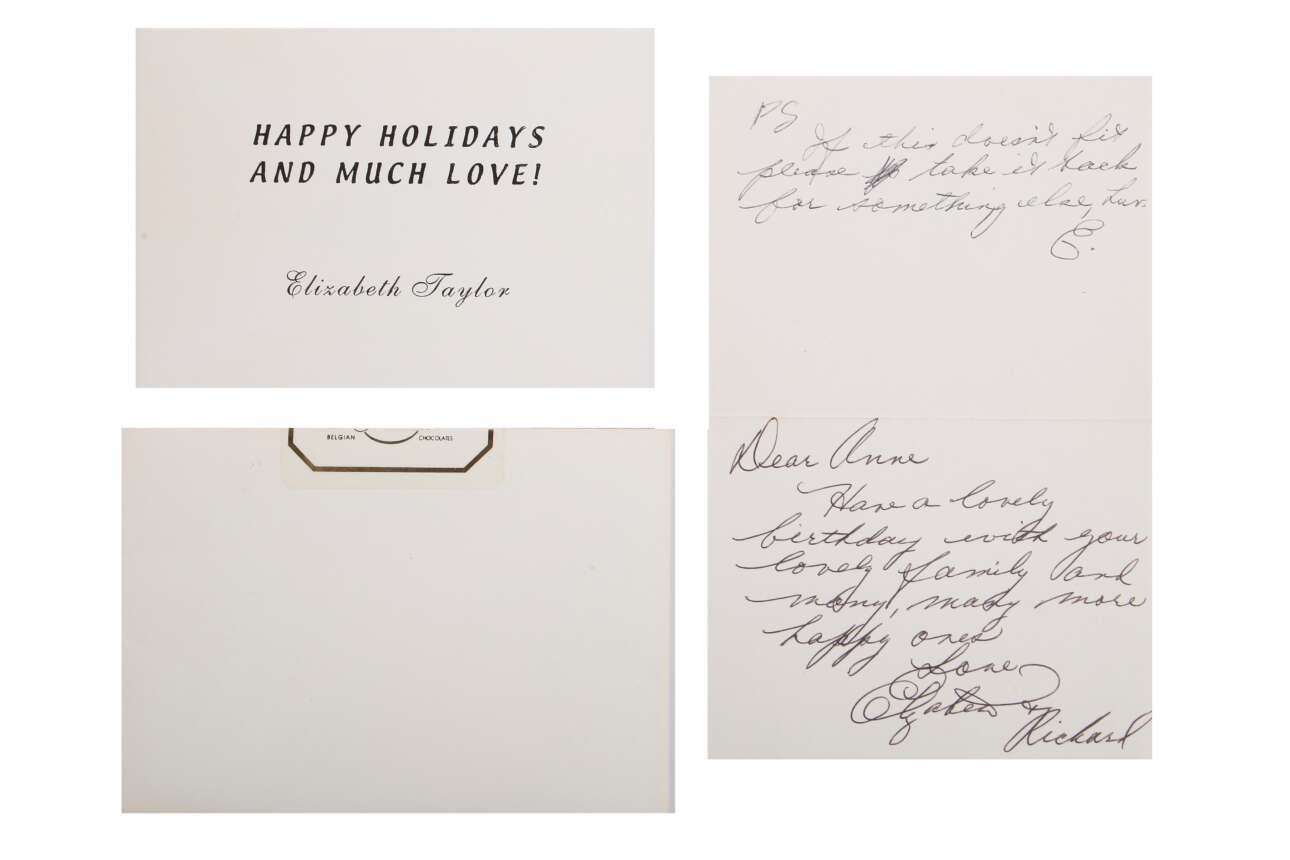 HAPPY HOLIDAYS
AND MUCH LOVE!
Elizabeth Taylor
BELGIAN CHOCOLATES
PS
If this doesn't fit
please take it back
for something else, Luv.
E.
Dear Anne
Have a lovely
birthday with your
lovely family and
many, many more
happy ones
Love
Elizabeth +
Richard